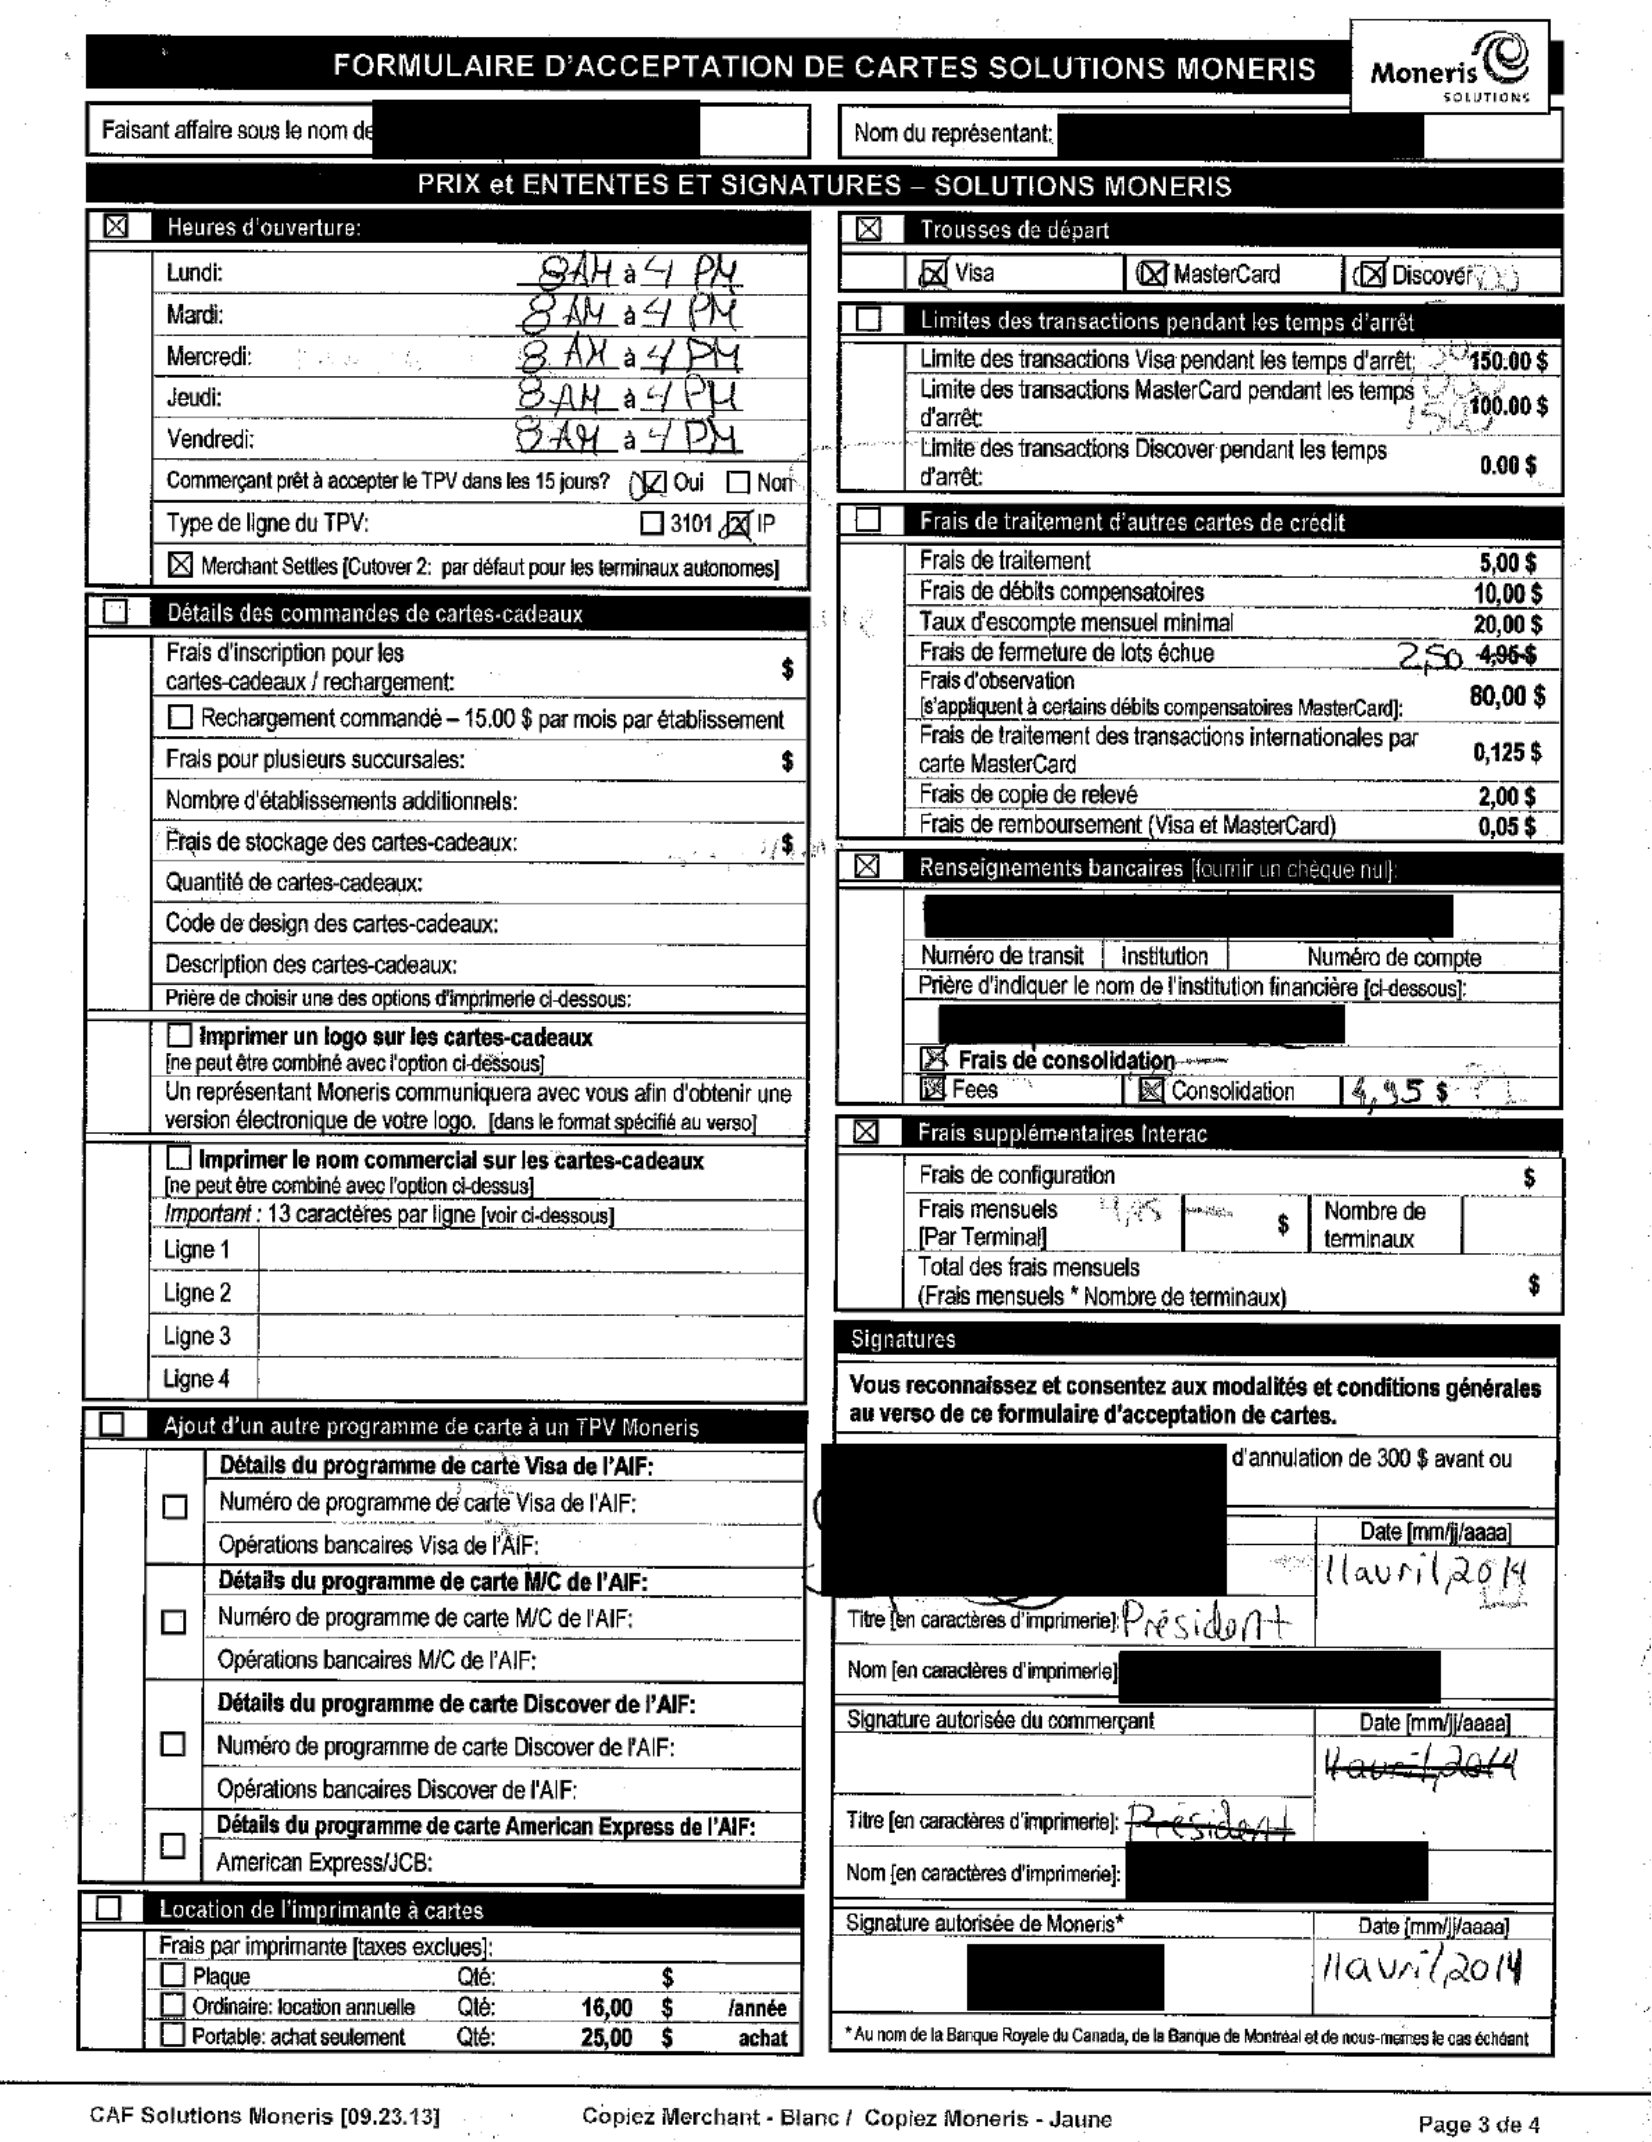 FORMULAIRE D'ACCEPTATION DE CARTES SOLUTIONS MONERIS
Moneris
SOLUTIONS
Faisant affaire sous le nom de
Nom du représentant:
PRIX et ENTENTES ET SIGNATURES – SOLUTIONS MONERIS
Heures d'ouverture:
Lundi: 8AM à 4 PM
Mardi: 8 AM à 4 PM
Mercredi: 8 AM à 4 PM
Jeudi: 8 AM à 4 PM
Vendredi: 8 AM à 4 PM
Commerçant prêt à accepter le TPV dans les 15 jours? Oui Non
Type de ligne du TPV: 3101 IP
Merchant Settles [Cutover 2: par défaut pour les terminaux autonomes]
Détails des commandes de cartes-cadeaux
Frais d'inscription pour les
cartes-cadeaux / rechargement: $
Rechargement commandé – 15.00 $ par mois par établissement
Frais pour plusieurs succursales: $
Nombre d'établissements additionnels:
Frais de stockage des cartes-cadeaux: $
Quantité de cartes-cadeaux:
Code de design des cartes-cadeaux:
Description des cartes-cadeaux:
Prière de choisir une des options d'imprimerie ci-dessous:
Imprimer un logo sur les cartes-cadeaux
[ne peut être combiné avec l'option ci-dessous]
Un représentant Moneris communiquera avec vous afin d'obtenir une
version électronique de votre logo. [dans le format spécifié au verso]
Imprimer le nom commercial sur les cartes-cadeaux
[ne peut être combiné avec l'option ci-dessus]
Important : 13 caractères par ligne [voir ci-dessous]
Ligne 1
Ligne 2
Ligne 3
Ligne 4
Ajout d'un autre programme de carte à un TPV Moneris
Détails du programme de carte Visa de l'AIF:
Numéro de programme de carte Visa de l'AIF:
Opérations bancaires Visa de l'AIF:
Détails du programme de carte M/C de l'AIF:
Numéro de programme de carte M/C de l'AIF:
Opérations bancaires M/C de l'AIF:
Détails du programme de carte Discover de l'AIF:
Numéro de programme de carte Discover de l'AIF:
Opérations bancaires Discover de l'AIF:
Détails du programme de carte American Express de l'AIF:
American Express/JCB:
Location de l'imprimante à cartes
Frais par imprimante [taxes exclues]:
Plaque Qté: $
Ordinaire: location annuelle Qté: 16,00 $ /année
Portable: achat seulement Qté: 25,00 $ achat
Trousses de départ
Visa MasterCard Discover
Limites des transactions pendant les temps d'arrêt
Limite des transactions Visa pendant les temps d'arrêt: 150.00 $
Limite des transactions MasterCard pendant les temps
d'arrêt: 100.00 $
Limite des transactions Discover pendant les temps
d'arrêt: 0.00 $
Frais de traitement d'autres cartes de crédit
Frais de traitement 5,00 $
Frais de débits compensatoires 10,00 $
Taux d'escompte mensuel minimal 20,00 $
Frais de fermeture de lots échue 2,50 4,95 $
Frais d'observation
[s'appliquent à certains débits compensatoires MasterCard]: 80,00 $
Frais de traitement des transactions internationales par
carte MasterCard 0,125 $
Frais de copie de relevé 2,00 $
Frais de remboursement (Visa et MasterCard) 0,05 $
Renseignements bancaires [fournir un chèque nul]:
Numéro de transit Institution Numéro de compte
Prière d'indiquer le nom de l'institution financière [ci-dessous]:
Frais de consolidation
Fees Consolidation 4,95 $
Frais supplémentaires Interac
Frais de configuration $
Frais mensuels
[Par Terminal] $ Nombre de
terminaux
Total des frais mensuels
(Frais mensuels * Nombre de terminaux) $
Signatures
Vous reconnaissez et consentez aux modalités et conditions générales
au verso de ce formulaire d'acceptation de cartes.
d'annulation de 300 $ avant ou
Date [mm/jj/aaaa]
11 avril, 2014
Titre [en caractères d'imprimerie]: Président
Nom [en caractères d'imprimerie]
Signature autorisée du commerçant Date [mm/jj/aaaa]
11 avril, 2014
Titre [en caractères d'imprimerie]: Président
Nom [en caractères d'imprimerie]:
Signature autorisée de Moneris* Date [mm/jj/aaaa]
11 avril, 2014
*Au nom de la Banque Royale du Canada, de la Banque de Montréal et de nous-memes le cas échéant
CAF Solutions Moneris [09.23.13]
Copiez Merchant - Blanc / Copiez Moneris - Jaune
Page 3 de 4